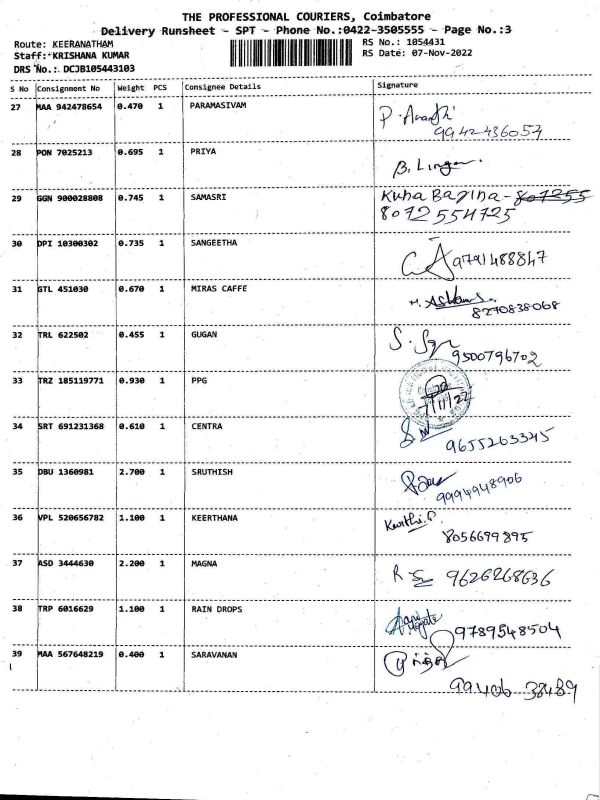 THE PROFESSIONAL COURIERS, Coimbatore
Delivery Runsheet - SPT - Phone No.:0422-3505555 - Page No.:3
Route: KEERANATHAM RS No.: 1054431
Staff: KRISHANA KUMAR RS Date: 07-Nov-2022
DRS No.: DCJB105443103
S No Consignment No Weight PCS Consignee Details Signature
27 MAA 942478654 0.470 1 PARAMASIVAM P.
9942436057
28 PON 7025213 0.695 1 PRIYA B.
29 GGN 900028808 0.745 1 SAMASRI
8072554725
30 DPI 10300302 0.735 1 SANGEETHA 9791488847
31 GTL 451030 0.670 1 MIRAS CAFFE
8270838068
32 TRL 622502 0.455 1 GUGAN S.
9500796702
33 TRZ 185119771 0.930 1 PPG
7/11/22
34 SRT 691231368 0.610 1 CENTRA
9655263345
35 DBU 1360981 2.700 1 SRUTHISH
9994948906
36 VPL 520656782 1.100 1 KEERTHANA Keerthi.P
8056699895
37 ASD 3444630 2.200 1 MAGNA 9626268636
38 TRP 6016629 1.100 1 RAIN DROPS
9789548504
39 MAA 567648219 0.400 1 SARAVANAN
99406 38489